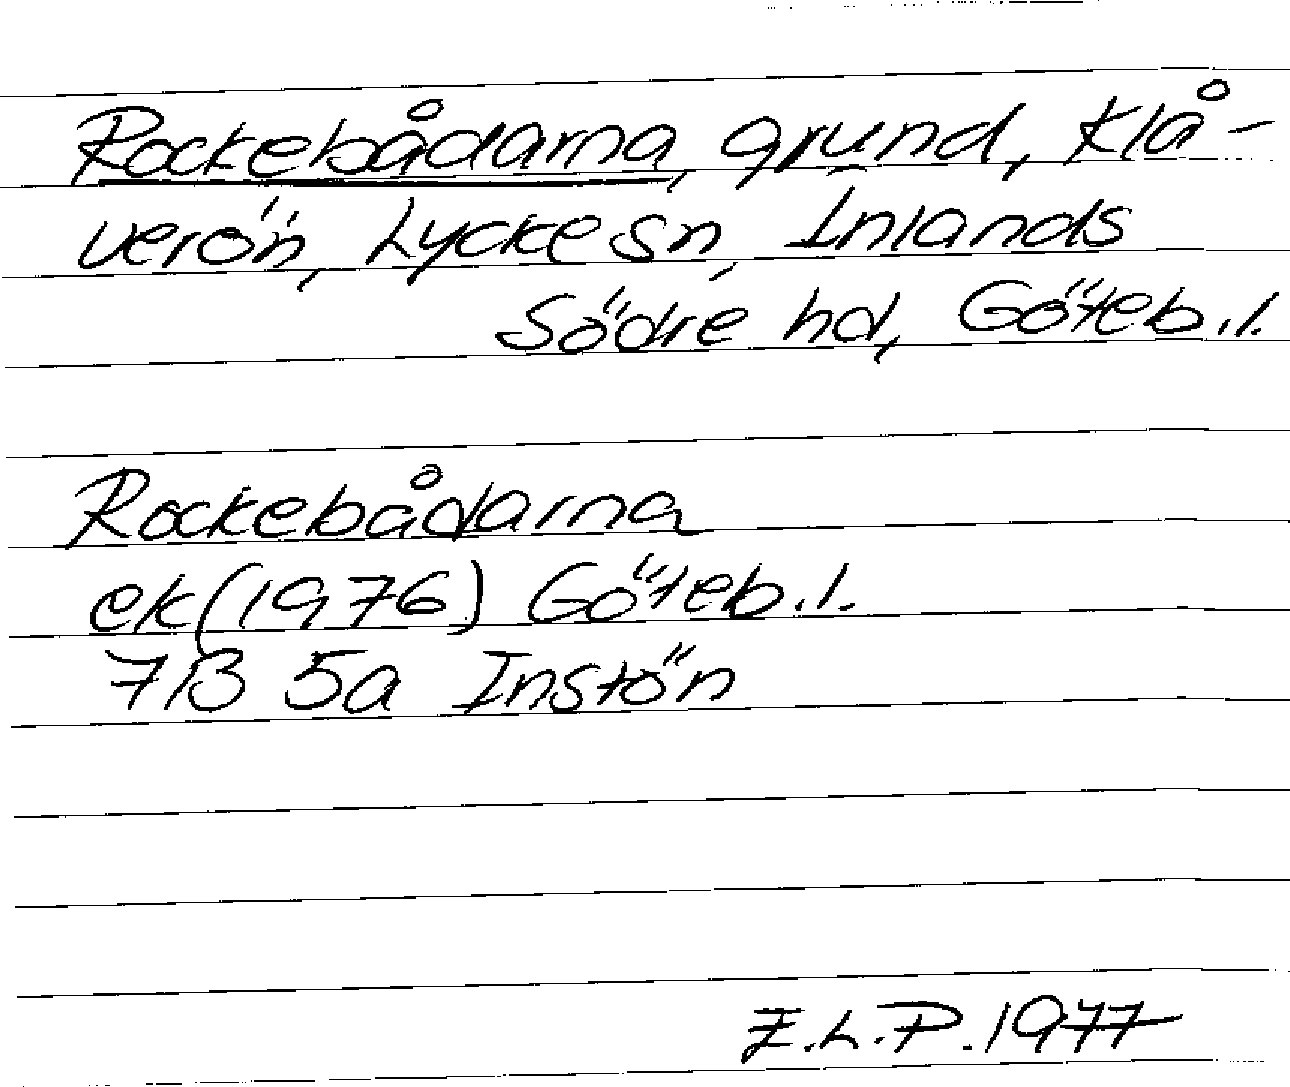 Rockebådarna, grund, Klå-
verön, Lycke sn, Inlands
Södre hd, Göteb.l.
Rockebådarna
ek (1976) Göteb.l.
7B 5a Instön
E.L.P. 1977